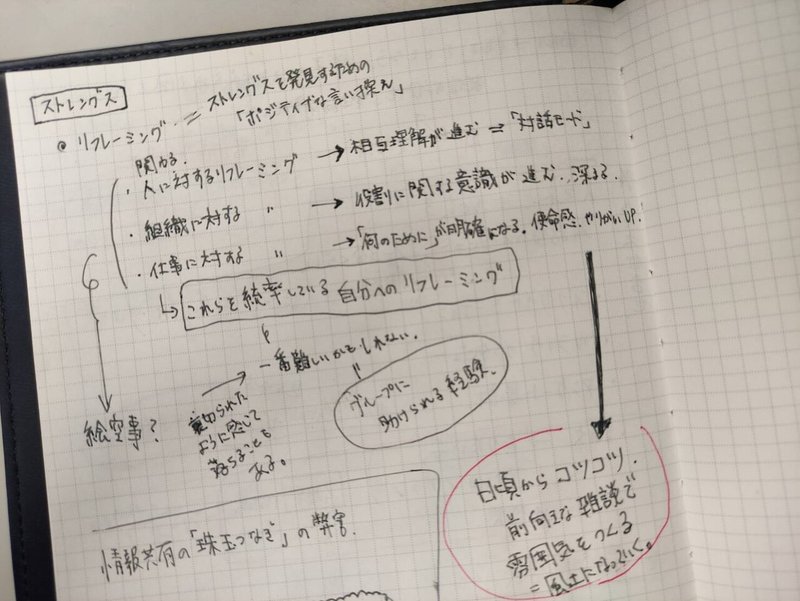 ストレングス
・リフレーミング = ストレングスを発見するための
「ポジティブな言い換え」
関わる.
・人に対するリフレーミング → 相互理解が進む = 「対話モード」
・組織に対する 〃 → 役割に関する意識が進む.深まる.
・仕事に対する 〃 → 「何のために」が明確になる.使命感.やりがいUP.
↳ これらを統率している自分へのリフレーミング
一番難しいかもしれない.
〃
グループに
助けられる経験.
絵空事?
裏切られた
ように感じて
落ちることも
ある。
日頃からコツコツ.
前向きな雑談で
雰囲気をつくる
=風土になっていく。
情報共有の「珠玉つなぎ」の弊害.